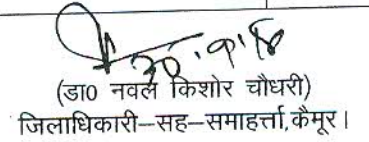 (डा० नवल किशोर चौधरी)
जिलाधिकारी–सह–समाहर्त्ता,कैमूर।